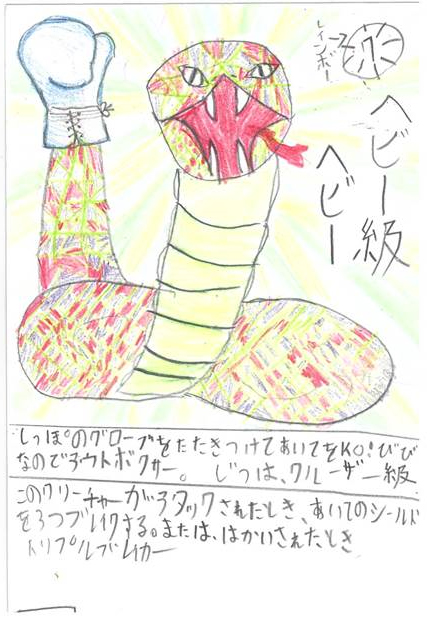 レインボー→
ヘビー級
ヘビー
しっぽのグローブをたたきつけてあいてをKO!びび
なのでアウトボクサー。じつは、クルーザー級
このクリーチャーがアタックされたとき、あいてのシールド
を3つブレイクする。または、はかいされたとき
トリプルブレイカー